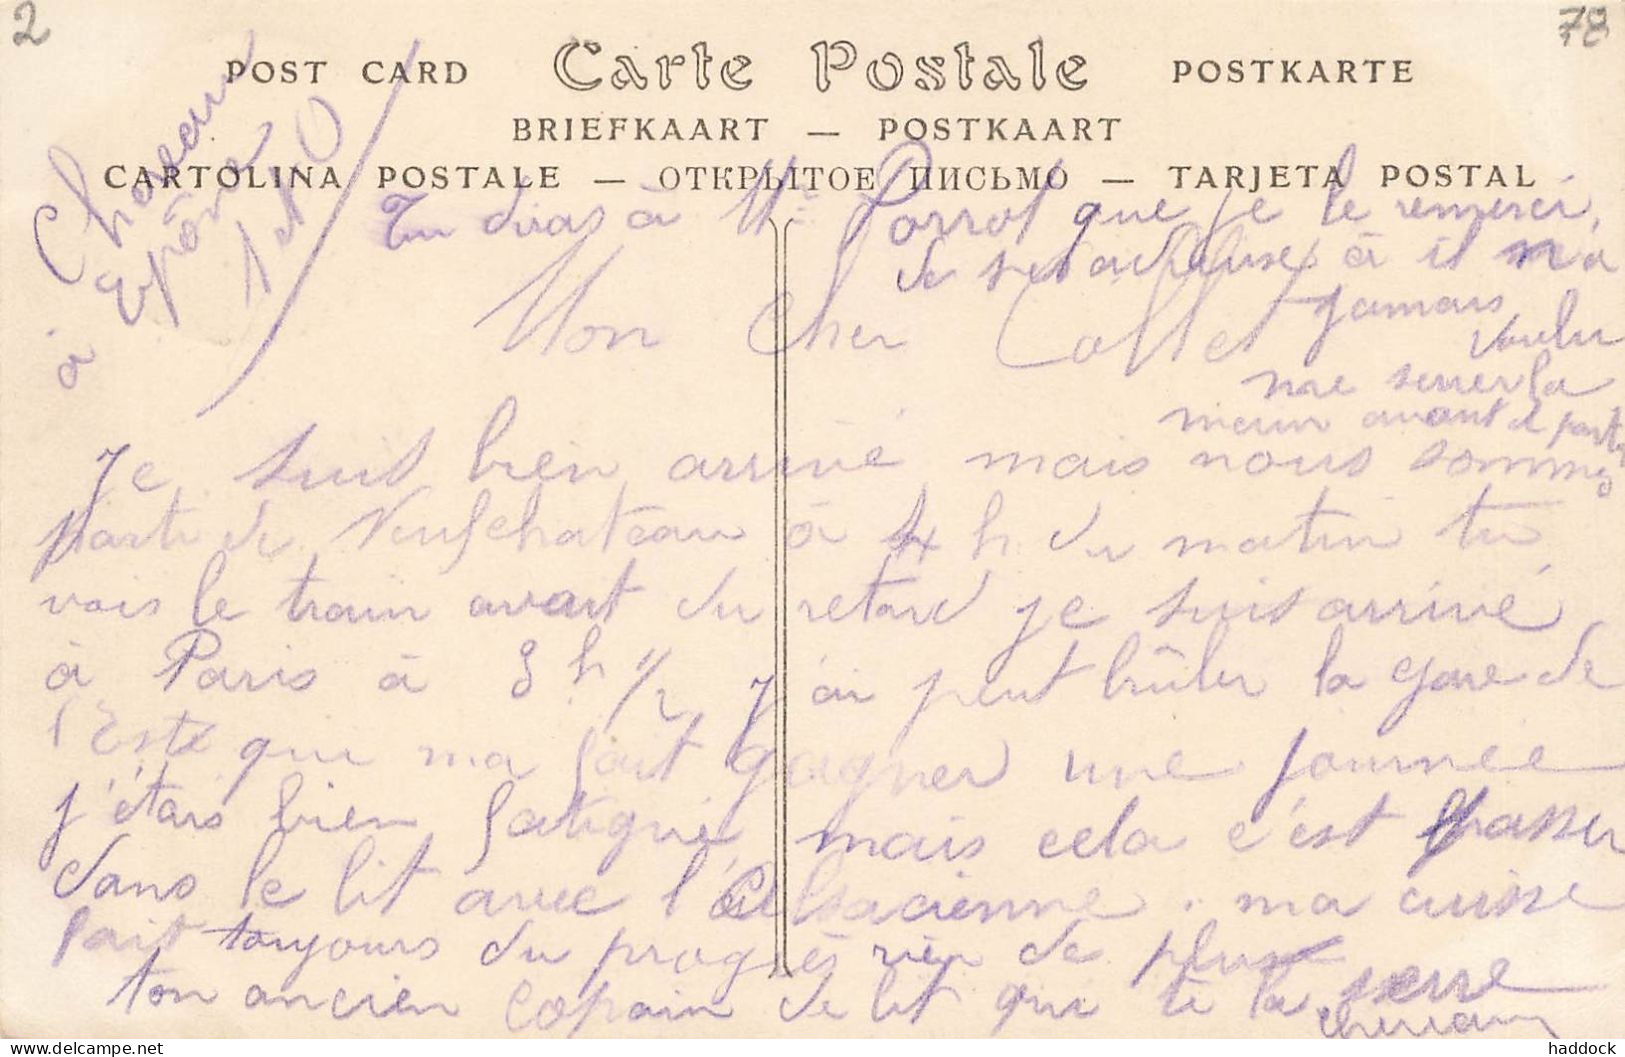 2
78
POST CARD Carte Postale POSTKARTE
BRIEFKAART — POSTKAART
CARTOLINA POSTALE — ОТКРЫТОЕ ПИСЬМО — TARJETA POSTAL
à Epône
Tu diras à Mr que je le remerci
de à il m'a
jamais
voulu
me serrer la
main avant de partir
Mon Cher Collet
Je suis bien arrivé mais nous sommes
parti de Neufchateau à 4 h du matin tu
vois le train avait du retard je suis arrivé
à Paris à 3 h 1/2 J'ai peut brûler la gare de
l'Este qui ma fait gagner une journée
j'étais bien fatigué, mais cela c'est passer
dans le lit avec l'Alsacienne. ma cuisse
fait toujours du progrès rien de plus
ton ancien copain de lit qui te la serre
haddock